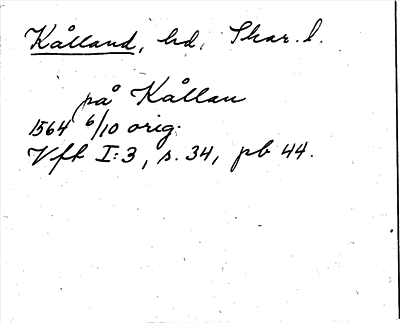 Kålland, hd, Skar. l.
på Kållan
1564 6/10 orig.
Vfk I:3, s. 34, pb 44.